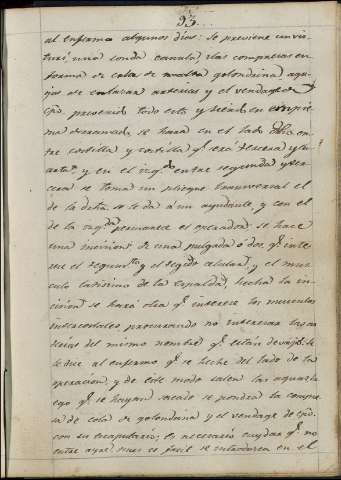 93.
al enfermo algunos dias: se previene un vis-
turi, una sonda canula, las compresas en
forma de cola de golondrina, agu-
jas de enlazar arterias y el vendage de
cpo. prevenido todo esto y siendo en empie-
ma derramado, se hará en el lado dho. en-
tre costilla y costilla qe. será tercera y qu-
arta, y en el izqdo. entre segunda y ter-
cera se toma un pliegue transversal el
de la dcha. se le da á un ayudante, y con el
de la izqda. permanece el operador, se hace
una incision de una pulgada ó dos, qe. inte-
rese el tegumto. y el tegido celular, y el mus-
culo latisimo de la espalda, hecha la in-
cision se hará otra qe. interese los musculos
intercostales, procurando no interesar las ar-
terias del mismo nombre qe. están devajo. Se
le dice al enfermo qe. se heche del lado de la
operacion, y de este modo salen las aguas, lu-
ego qe. se hayan sacado se pondrá la compre-
sa de cola de golondrina y el vendage de cpo.
con su escapulario; es necesario cuydar qe. no
entre ayre, pues es facil se introduzca en el